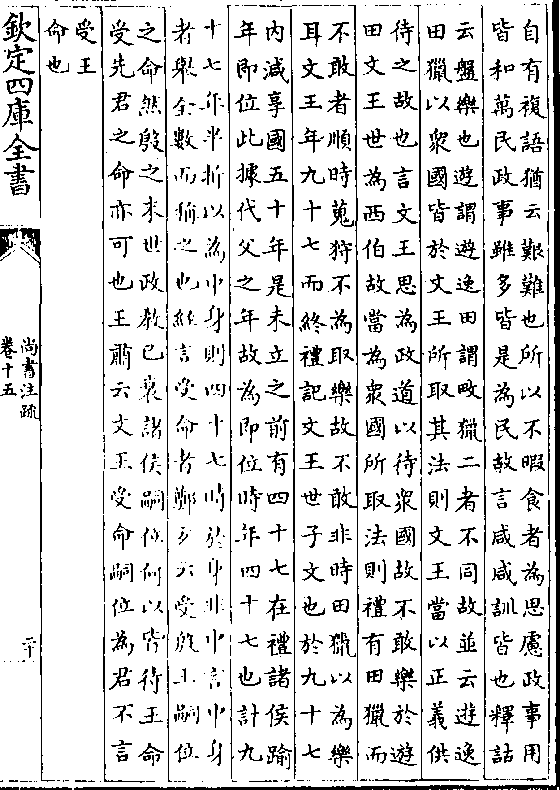 自有複語猶云艱難也所以不暇食者為思慮政事用
皆和萬民政事雖多皆是為民故言咸咸訓皆也釋詁
云盤樂也遊謂遊逸田謂畋獵二者不同故並云遊逸
田獵以衆國皆於文王所取其法則文王當以正義供
待之故也言文王思為政道以待衆國故不敢樂於遊
田文王世為西伯故當為衆國所取法則禮有田獵而
不敢者順時蒐狩不為取樂故不敢非時田獵以為樂
耳文王年九十七而終禮記文王世子文也於九十七
内減享國五十年是未立之前有四十七在禮諸侯踰
年即位此據代父之年故為即位時年四十七也計九
十七年半折以為中身則四十七時於身非中言中身
者舉全數而稱之也經言受命者鄭玄云受殷王嗣位
之命然殷之末世政教已衰諸侯嗣位何以皆待王命
受先君之命亦可也王肅云文王受命嗣位為君不言
受王
命也
欽定四庫全書
尚書注疏
卷十五
二十